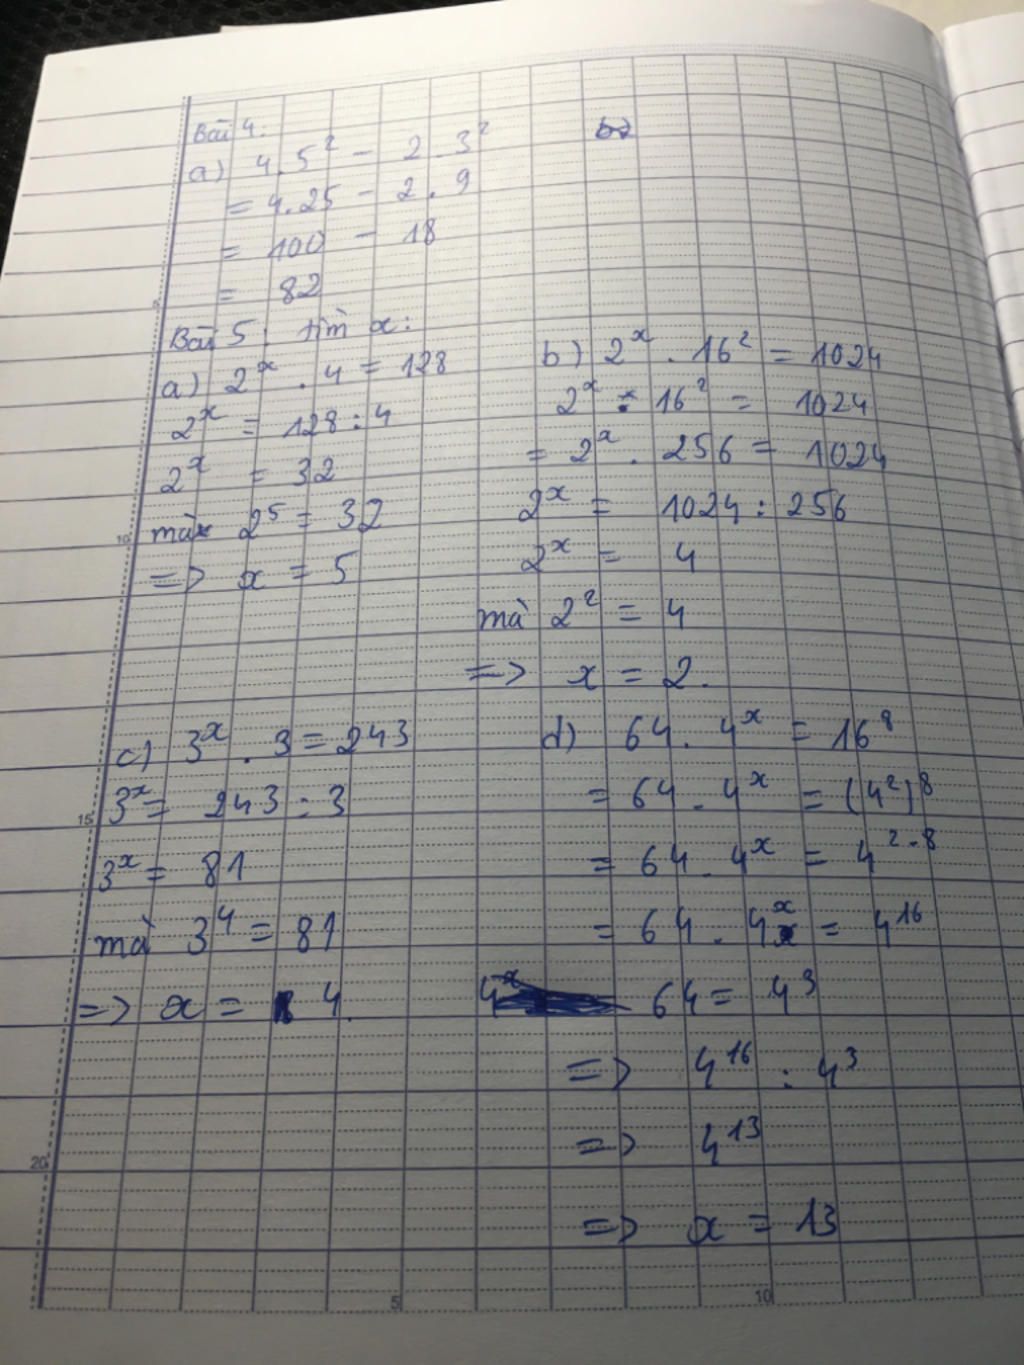 Bài 4:
a) 4.5² - 2.3²
= 4.25 - 2.9
= 100 - 18
= 82
Bài 5: tìm x:
a) 2ˣ . 4 = 128
2ˣ = 128 : 4
2ˣ = 32
mà 2⁵ = 32
=> x = 5
b) 2ˣ . 16² = 1024
2ˣ . 16² = 1024
= 2ˣ . 256 = 1024
2ˣ = 1024 : 256
2ˣ = 4
mà 2² = 4
=> x = 2.
c) 3ˣ . 3 = 243
3ˣ = 243 : 3
3ˣ = 81
mà 3⁴ = 81
=> x = 4.
d) 64 . 4ˣ = 16⁸
= 64 . 4ˣ = (4²)⁸
= 64 . 4ˣ = 4²·⁸
= 64 . 4ˣ = 4¹⁶
64 = 4³
=> 4¹⁶ : 4³
=> 4¹³
=> x = 13
5
10
15
20
5
10